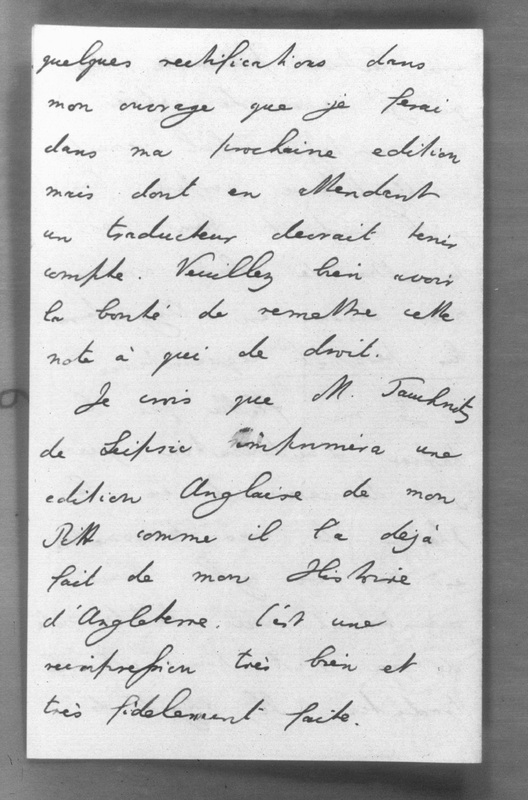 quelques rectifications dans
mon ouvrage que je ferai
dans ma prochaine edition
mais dont en attendant
un traducteur devrait tenir
compte. Veuillez bien avoir
la bonté de remettre cette
note à qui de droit.
Je crois que M. Tauchnitz
de Leipsic imprimera une
edition Anglaise de mon
Pitt comme il l'a déjà
fait de mon Histoire
d'Angleterre. C'est une
reimpression très bien et
très fidelement faite.